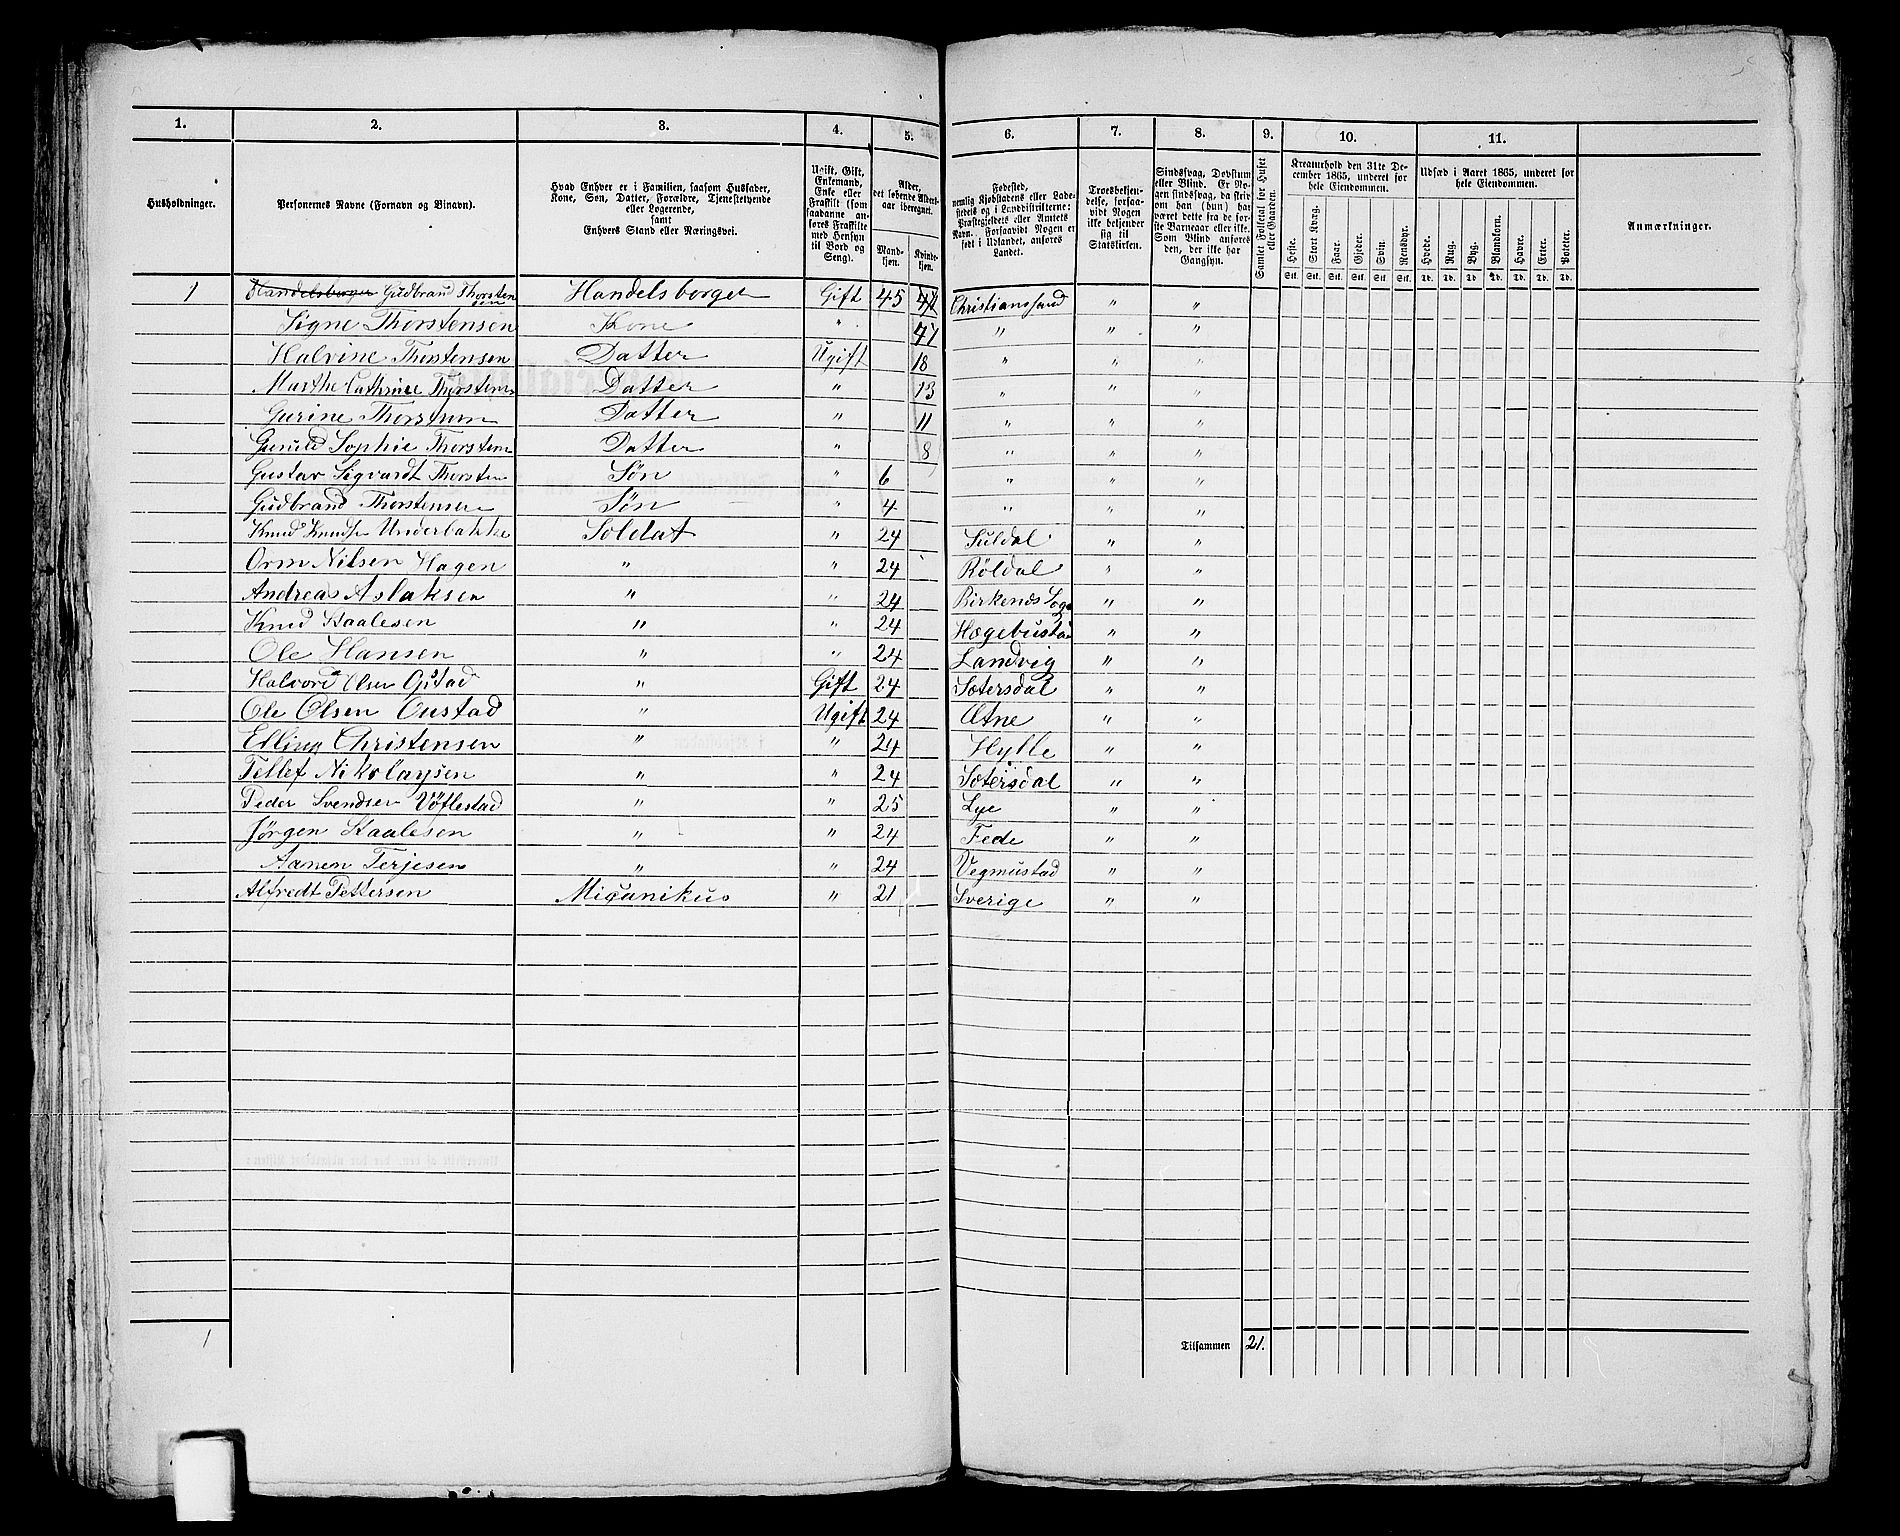 1. 2. 3. 4. 5. 6. 7. 8. 9. 10. 11.
Husholdninger.
Personernes Navne (Fornavn og Binavn).
Hvad Enhver er i Familien, saasom Husfader,
Kone, Søn, Datter, Forældre, Tjenestetyende
eller Logerende,
samt
Enhvers Stand eller Næringsvei.
Ugift, Gift,
Enkemand,
Enke eller
Fraskilt (som
saadanne an-
føres Fraskilte
med Hensyn
til Bord og
Seng).
Alder,
det løbende Alders-
aar iberegnet.
Mand-
kjøn.
Kvinde-
kjøn.
Fødested,
nemlig Kjøbstadens eller Lade-
stedets og i Landdistrikterne:
Præstegjeldets eller Amtets
Navn. Forsaavidt Nogen er
født i Udlandet, anføres
Landet.
Troesbekjen-
delse, forsaa-
vidt Nogen
ikke bekjender
sig til
Statskirken.
Sindssvag, Døvstum
eller Blind. Er No-
gen sindssvag, da skri-
ves om han (hun) har
været dette fra de før-
ste Barneaar eller ikke.
Som Blind anføres
den, der ikke har
Gangsyn.
Samlet Folketal for Huset
eller Gaarden.
Kreaturhold den 31te De-
cember 1865, underet for
hele Eiendommen.
Heste. Stort Kvæg. Faar. Gjeder. Svin. Rensdyr.
Stk. Stk. Stk. Stk. Stk. Stk.
Udsæd i Aaret 1865, underet for
hele Eiendommen.
Hvede. Rug. Byg. Blandkorn. Havre. Erter. Poteter.
Td. Td. Td. Td. Td. Td. Td.
Anmærkninger.
1 Handelsborger Gudbrand Thorstensen Handelsborger Gift 45 Christianssand " "
Signe Thorstensen Kone " 47 " " "
Halvine Thorstensen Datter Ugift 18 " " "
Marthe Cathrine Thorstens Datter " 13 " " "
Gurine Thorstens Datter " 11 " " "
Gunild Sophie Thorsten Datter " 8 " " "
Gustav Sigvardt Thorsten Søn " 6 " " "
Gudbrand Thorstensen Søn " 4 " " "
Knud Knudsen Underbakke Soldat " 24 Suldal " "
Orm Nilsen Hagen " " 24 Röldal " "
Andreas Aslaksen " " 24 Birkenes Sogn " "
Knud Staalesen " " 24 Hægebustad " "
Ole Hansen " " 24 Landvig " "
Halvord Olsen Opstad " Gift 24 Sætersdal " "
Ole Olsen Oustad " Ugift 24 Ætne " "
Elling Christensen " " 24 Hylle " "
Tellef Nikolaysen " " 24 Sætersdal " "
Peder Svendsen Vöflestad " " 25 Lye " "
Jørgen Staalesen " " 24 Fede " "
Aanen Terjesen " " 24 Vegmustad " "
Alfredt Pettersen Micanikus " 21 Sverige " "
1 Tilsammen 21.